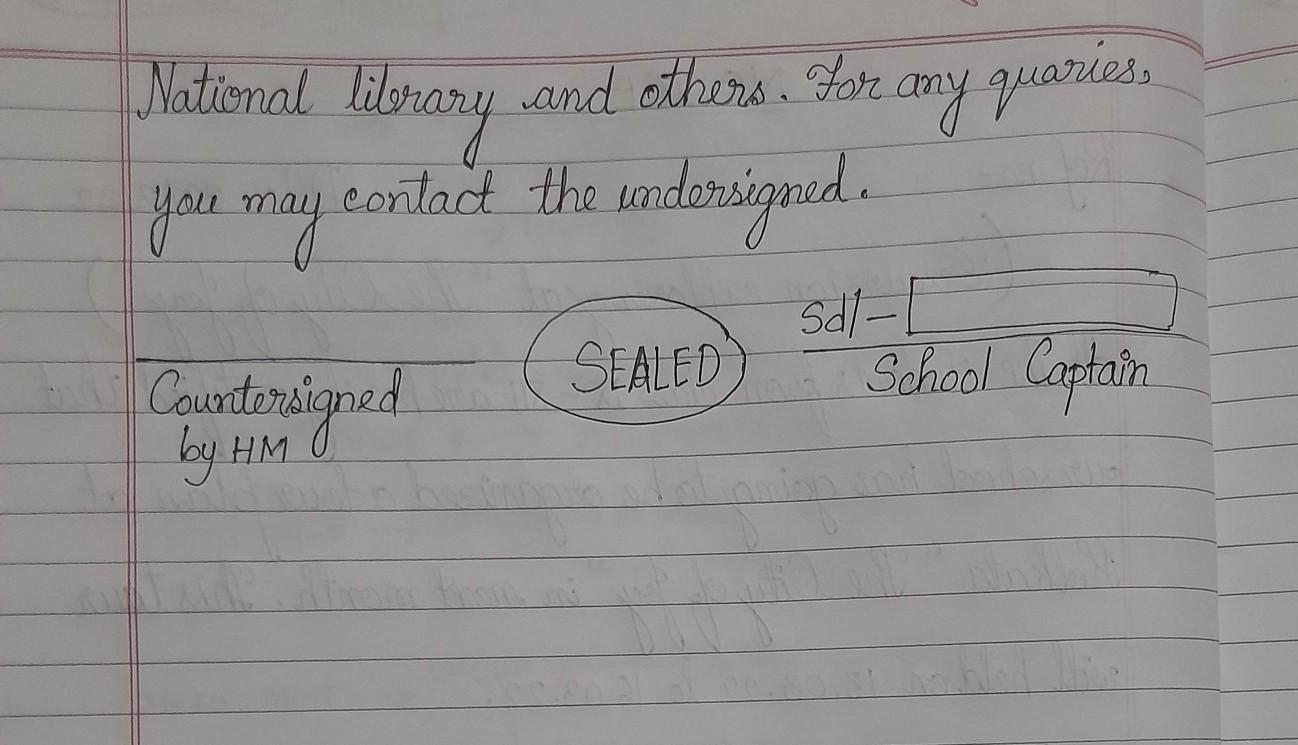 National library and others. For any quaries,
you may contact the undersigned.
Sd/-
SEALED
School Captain
Countersigned
by HM